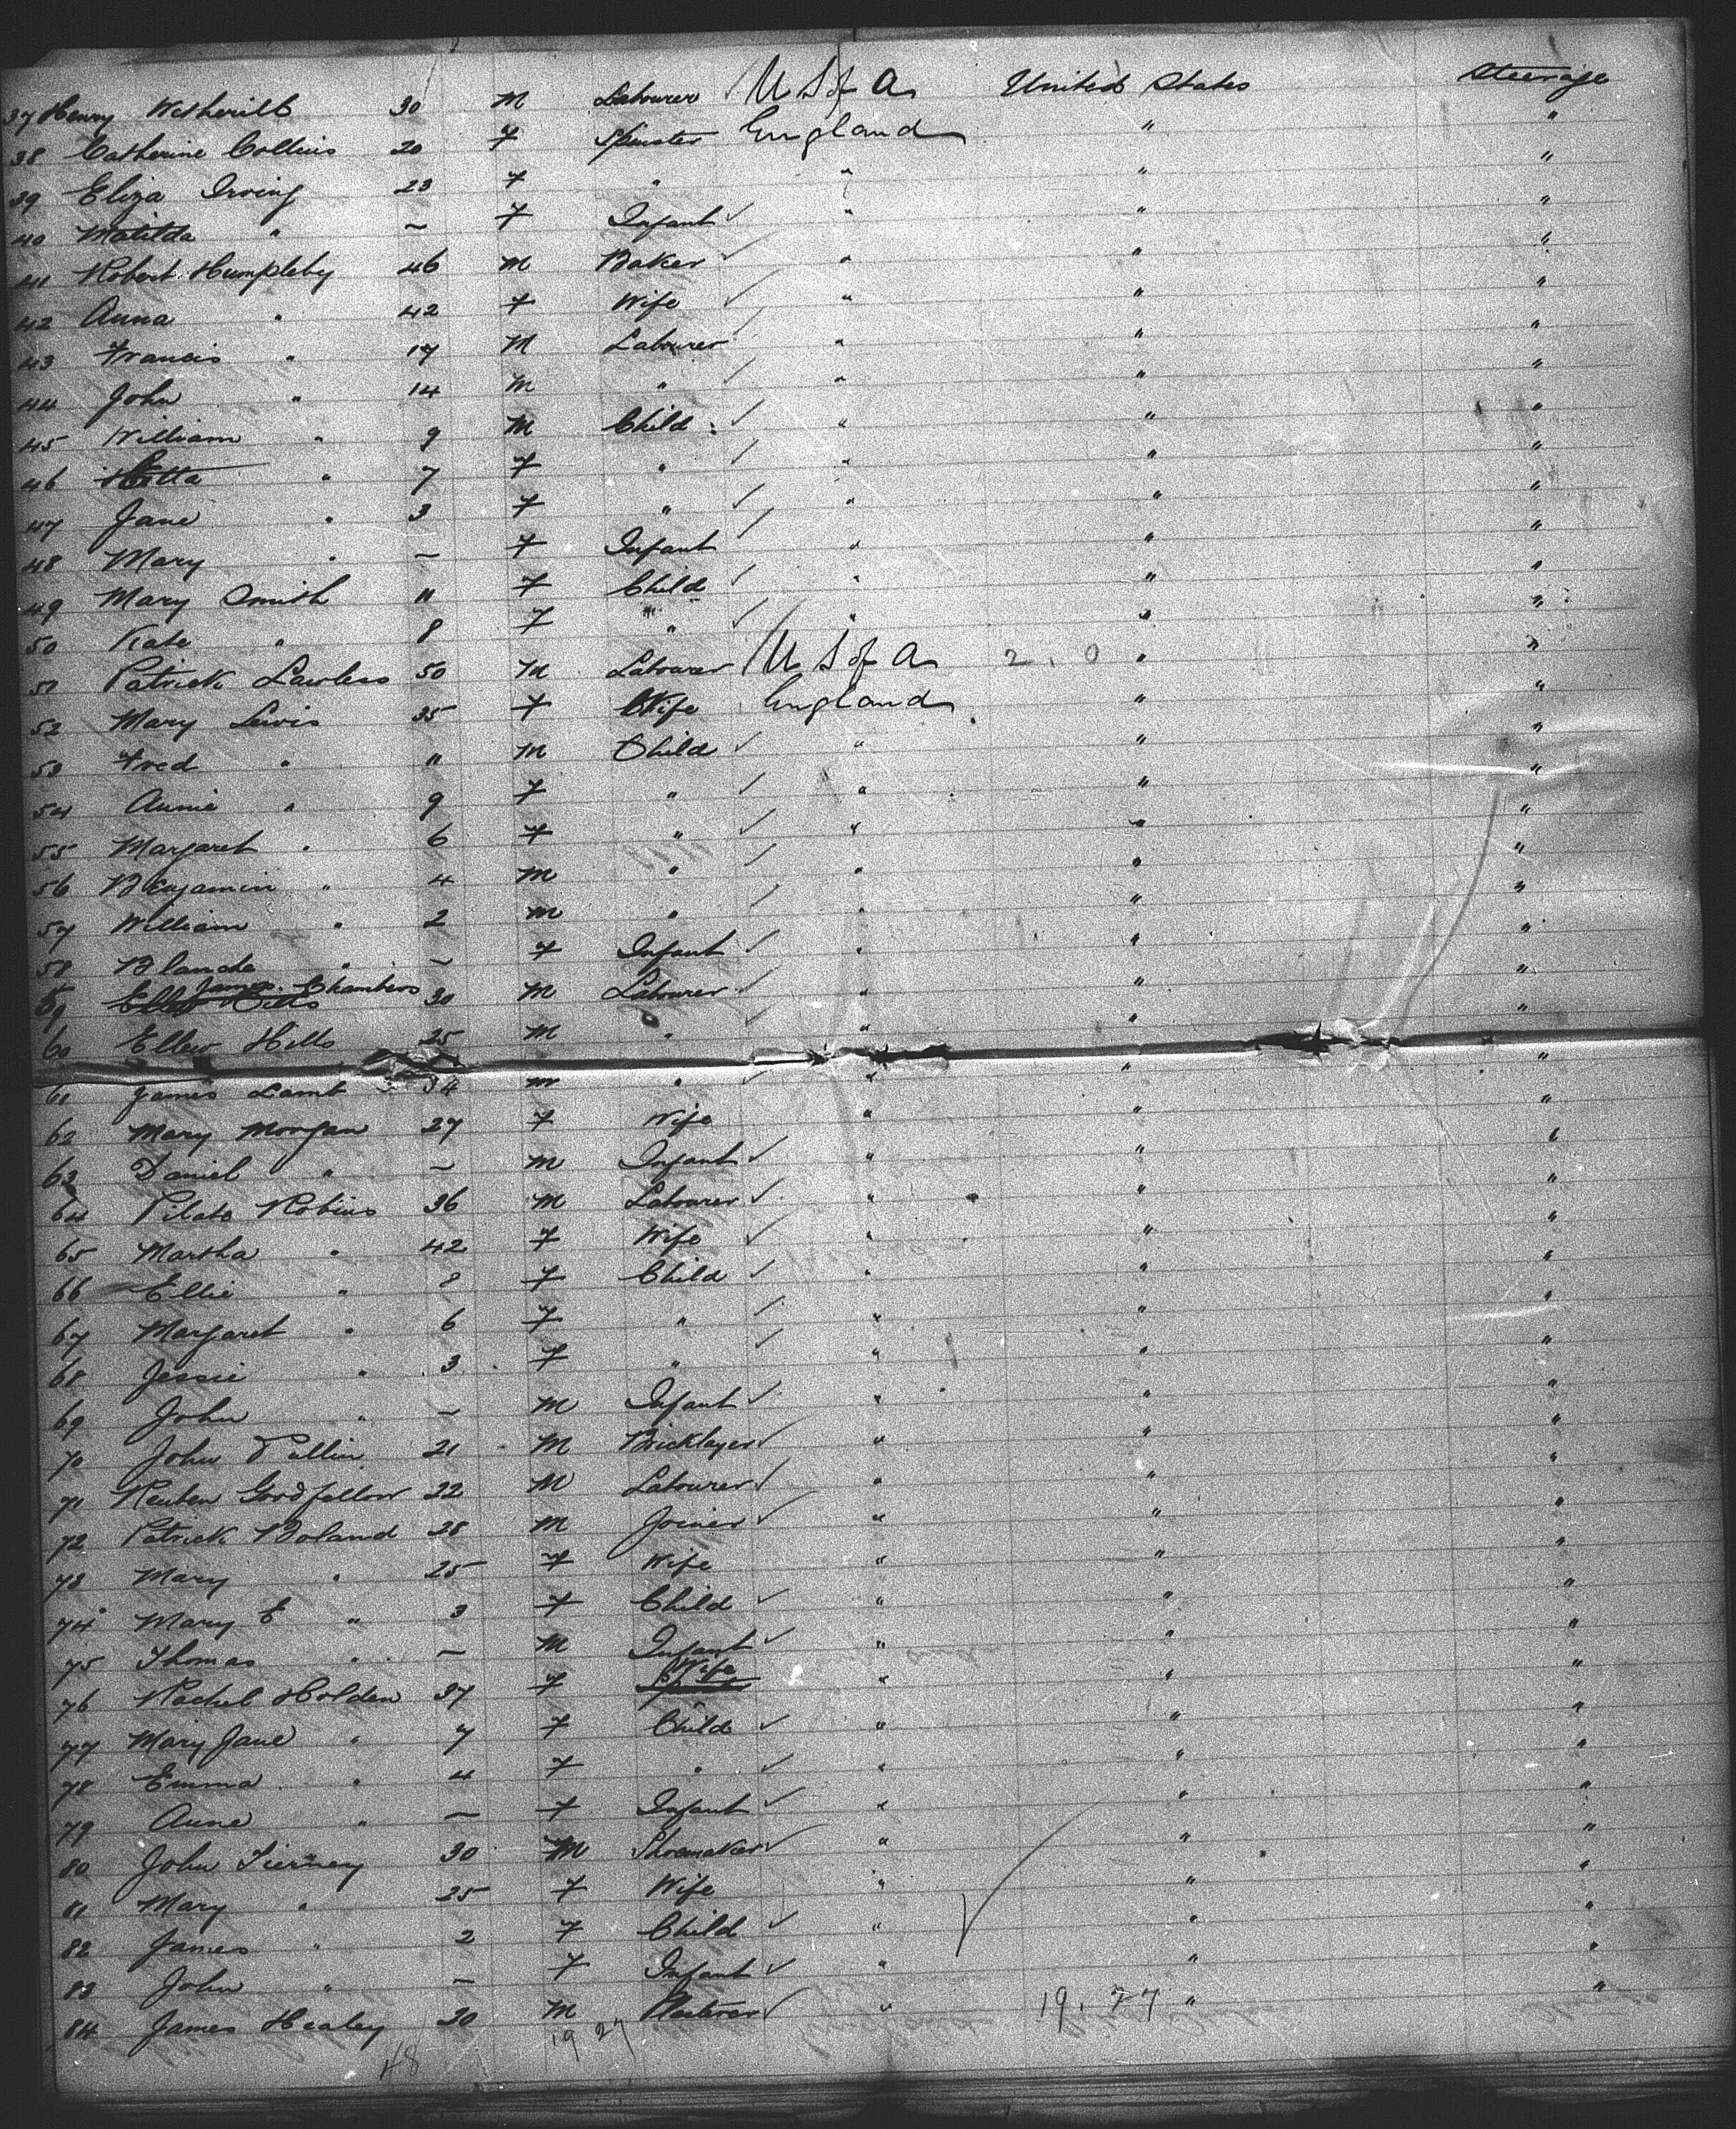 37 Henry Witherill 30 M Labourer U S of A United States Steerage
38 Catherine Collins 20 F Spinster England " "
39 Eliza Irving 23 F " " " "
40 Matilda " – F Infant ✓ " " "
41 Robert Humpleby 46 M Baker ✓ " " "
42 Anna " 42 F Wife ✓ " " "
43 Francis " 17 M Labourer ✓ " " "
44 John " 14 M " ✓ " " "
45 William " 9 M Child ✓ " " "
46 Hetta " 7 F " ✓ " " "
47 Jane " 3 F " ✓ " " "
48 Mary " – F Infant ✓ " " "
49 Mary Smith 11 F Child ✓ " " "
50 Kate " 8 F " ✓ " " "
51 Patrick Lawless 50 M Labourer U S of A 2. 0 " "
52 Mary Lewis 35 F Wife England " "
53 Fred " 11 M Child ✓ " " "
54 Annie " 9 F " ✓ " " "
55 Margaret " 6 F " ✓ " " "
56 Benjamin " 4 M " ✓ " " "
57 William " 2 M " ✓ " " "
58 Blanche " – F Infant ✓ " " "
59 James Chambers 30 M Labourer ✓ " " "
60 Ellew Hills 25 M " ✓ " " "
61 James Lamb 34 M " ✓ " " "
62 Mary Morgan 27 F Wife " " "
63 Daniel " – M Infant ✓ " " "
64 Pilato Robins 36 M Labourer ✓ " " "
65 Martha " 42 F Wife ✓ " " "
66 Ellie " 8 F Child ✓ " " "
67 Margaret " 6 F " ✓ " " "
68 Jessie " 3 F " ✓ " " "
69 John " – M Infant ✓ " " "
70 John Pullin 21 M Bricklayer ✓ " " "
71 Reuben Goodfellow 22 M Labourer ✓ " " "
72 Patrick Boland 28 M Joiner ✓ " " "
73 Mary " 25 F Wife " " "
74 Mary E " 3 F Child ✓ " " "
75 Thomas " – M Infant ✓ " " "
76 Rachel Holden 37 F Wife " " "
77 Mary Jane " 7 F Child ✓ " " "
78 Emma " 4 F " ✓ " " "
79 Anne " – F Infant ✓ " " "
80 John Tierney 30 M Shoemaker ✓ " " "
81 Mary " 25 F Wife " " "
82 James " 2 F Child ✓ " " "
83 John " – F Infant ✓ " " "
84 James Healey 30 M Plasterer ✓ " 19. 27 " "
48 19 27